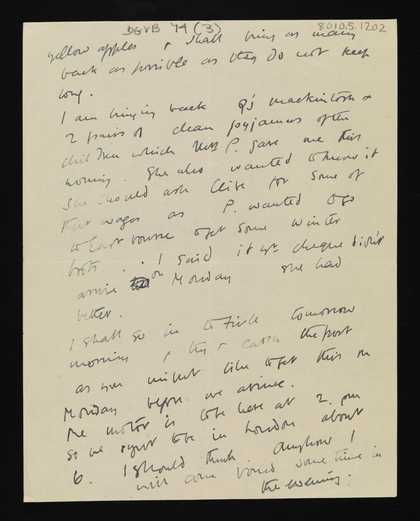 DGVB 79 (3)
8010.5.1202
yellow apples & shall bring as many
back as possible as they do not keep
long.
I am bringing back Q's mackintosh &
2 pairs of clean pyjamas of the
children which Mrs P. gave me this
morning. She also wanted to know if
she should ask Clive for some of
their wages as P. wanted to go
to Eastbourne to get some winter
boots. .. I said if yr cheque didn't
arrive on Monday she had
better.
I shall go in to Firle tomorrow
morning & try & catch the post
as you might like to get this on
Monday before we arrive.
The motor is to be here at 2. pm
so we expect to be in London about
6. I should think. Anyhow I
will come round some time in
the evening.